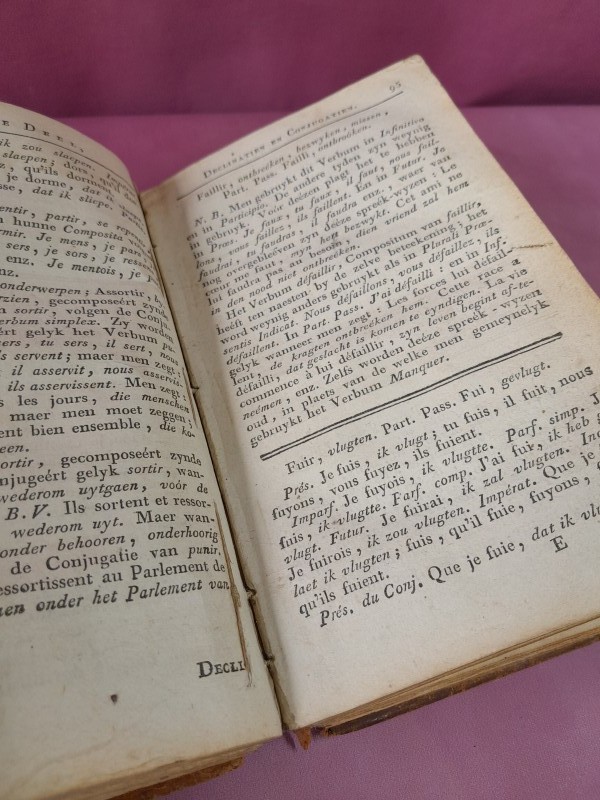 E DEEL,
ik zou slaepen, Imparf.
slaepen; dors,
z, qu'ils dorment,
je dorme, dat ik
sse, dat ik sliepe.
entir, partir, se repen-
n hunne Composita
rmir. Je mens, je
sers, je sors, je
enz. Je mentois, je
onderwerpen; Assortir,
rzien, gecomposeért
n sortir, volgen de Conjuga-
erbum simplex. Zy worden
eért gelyk het Verbum
sers, tu sers, il sert, nous
ls servent; maar men zegt:
il asservit, nous asservis-
ils asservissent. Men zegt:
s les jours, die menschen
maar men moet zeggen;
ent bien ensemble, die
een.
ortir, gecomposeért zynde
njugeért gelyk sortir, wan-
wederom uytgaen, voór de
B. V. Ils sortent et ressor-
wederom uyt. Maer wan-
onder behooren, onderhoorig
de Conjugatie van punir.
essortissent au Parlement de
aen onder het Parlement van
DECLI
DECLINATIEN EN CONJUGATIEN. 95
Faillir, ontbreéken, bezwyken, missen,
Part. Pass. Failli, ontbroóken.
N. B. Men gebruykt dit Verbum in Infinitien
en in Participien. De andere tyden zyn weynig
gebruyk. Voór deézen plagt het te hebben
in Præs. Je faux, tu faux, il faut, nous fail-
lons, vous faillez, ils faillent. En in Futur. Je
faudrai, tu faudras, enz. waar van
nog overgebleéven zyn deéze spreék-wyzen: Le
cœur me faut, myn hert bezwykt. Cet ami ne
lui faudra pas au besoin, dien vriend zal hem
in den nood niet ontbreéken.
Het Verbum défaillir, Compositum van faillir,
heéft ten naesten by de zelve beteekening; het
word weynig anders gebruykt als in Plurali Præ-
sentis Indicat. Nous défaillons, vous défaillez, ils
défaillent. In Part. Pass. J'ai défailli: en in Inf.
gelyk wanneer men zegt: Les forces lui défail-
lent, de kragten ontbreéken hem. Cette race a
défailli, dat geslacht is komen te eyndigen. La vie
commence à lui défaillir, zyn leven begint of-te-
neémen, enz. Zelfs worden deéze spreék-wyzen
oud, in plaets van de welke men gemeynelyk
gebruykt het Verbum Manquer.
Fuir, vlugten. Part. Pass. Fui, gevlugt.
Prés. Je fuis, ik vlugt; tu fuis, il fuit, nous
fuyons, vous fuyez, ils fuient.
Imparf. Je fuyois, ik vlugtte. Parf. simp. J
fuis, ik vlugtte. Parf. comp. J'ai fuir, ik heb g
vlugt. Futur. Je fuirai, ik zal vlugten. In
Je fuirois, ik zou vlugten. Impérat. Que je
laet ik vlugten; fuis, qu'il fuie, fuyons,
qu'ils fuient.
Prés. du Conj. Que je fuie, dat ik vlu
E